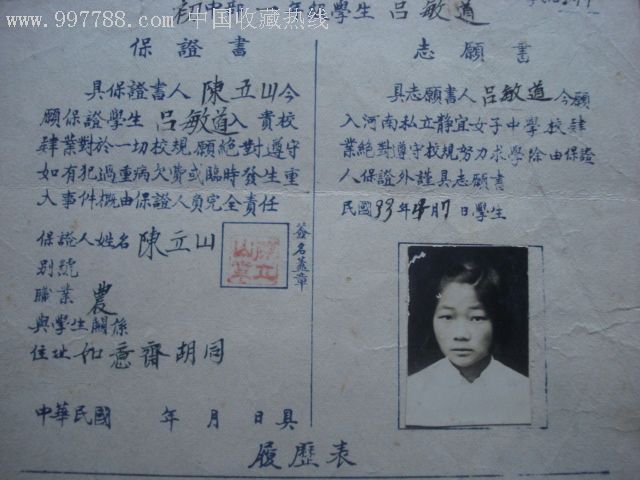 www.997788.com 中国收藏热线
初中部一年級學生 吕敏道
保證書
具保證書人 陳立山 今
願保證學生 吕敏道 入 貴校
肄業對於一切校規願絕對遵守
如有犯過重病欠費或臨時發生重
大事件概由保證人負完全責任
保證人姓名 陳立山
簽名蓋章
別號
職業 農
與學生關係
住址 如意齋胡同
中華民國 年 月 日具
志願書
具志願書人 吕敏道 今願
入河南私立靜宜女子中學校肄
業絕對遵守校規努力求學除由保證
人保證外謹具志願書
民國33年 月7日學生
履歷表